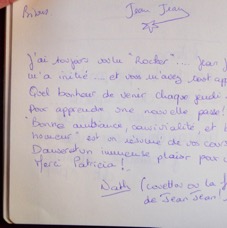 Jean Jean
J'ai toujours voulu "Rocker"... Jean J
m'a initié... et vous m'avez tout app
Quel bonheur de venir chaque jeudi
Pour apprendre une nouvelle passe!
"Bonne ambiance, convivialité, et b
humeur" est un résumé de vos cours
Danser un immense plaisir pour
Merci Patricia!
(ou la f
de Jean Jean)